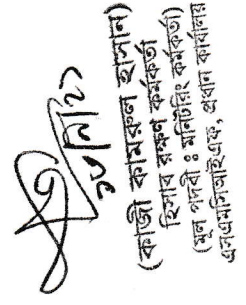 (কাজী কামরুল হাসান)
হিসাব রক্ষণ কর্মকর্তা
(মূল পদবী : মনিটরিং কর্মকর্তা)
এসএমসিআইএফ, প্রধান কার্যালয়